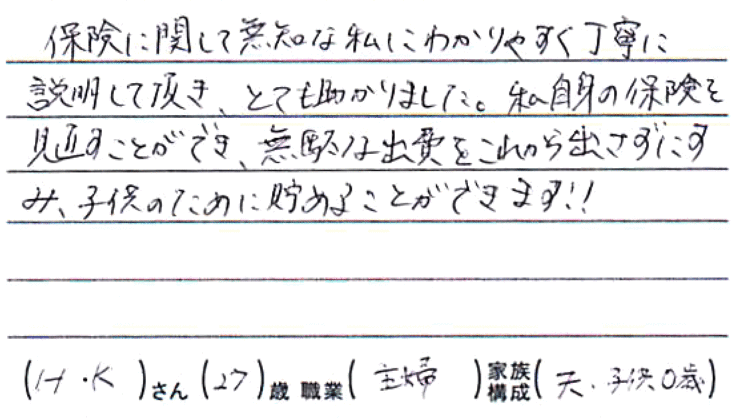 保険に関して無知な私にわかりやすく丁寧に
説明して頂き、とても助かりました。私自身の保険を
見直すことができ、無駄な出費をこれから出さずにす
み、子供のために貯めることができます!!
(H・K)さん(27)歳 職業(主婦)家族構成(夫、子供0歳)